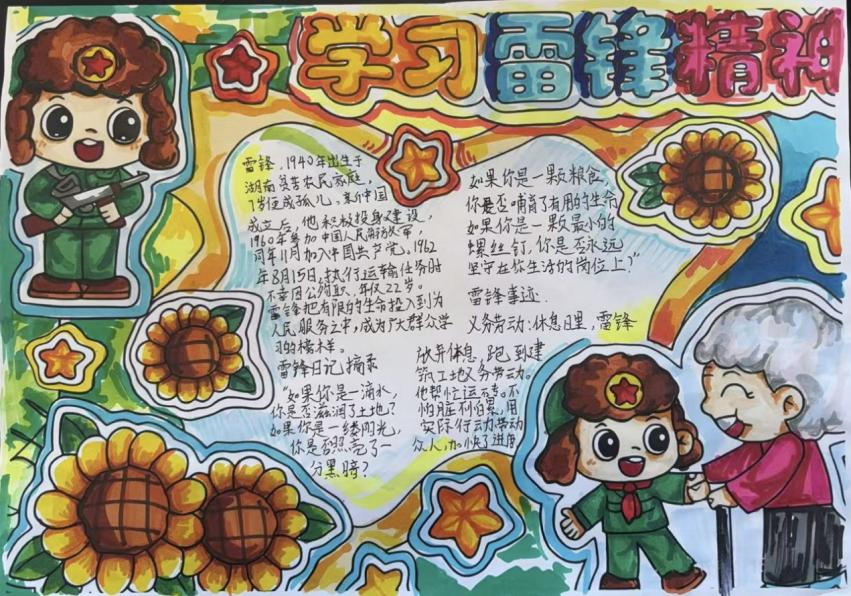 学习雷锋精神
雷锋,1940年出生于
湖南贫苦农民家庭,
7岁便成孤儿,新中国
成立后,他积极投身建设,
1960年参加中国人民解放军,
同年11月加入中国共产党,1962
年8月15日,执行运输任务时
不幸因公殉职,年仅22岁。
雷锋把有限的生命投入到为
人民服务之中,成为广大群众学
习的榜样。
雷锋日记摘录
"如果你是一滴水,
你是否滋润了土地?
如果你是一缕阳光,
你是否照亮了一
分黑暗?
如果你是一颗粮食,
你是否哺育了有用的生命
如果你是一颗最小的
螺丝钉,你是否永远
坚守在你生活的岗位上?"
雷锋事迹.
义务劳动:休息日里,雷锋
放弃休息,跑到建
筑工地义务劳动。
他帮忙运砖。不
怕脏不怕累,用
实际行动带动
众人,加快了进度